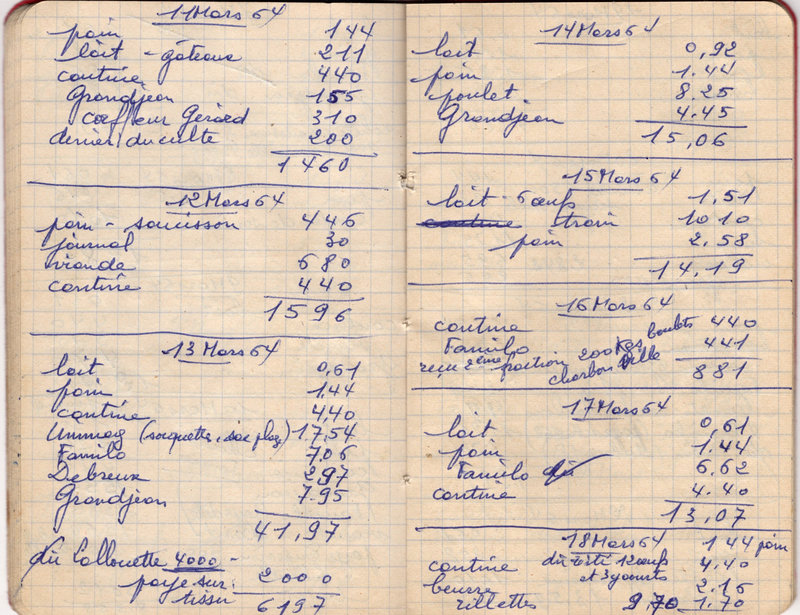 11 Mars 64
pain 144
lait - gâteaux 211
cantine 440
Grandjean 155
coiffeur Gérard 310
denier du culte 200
1460
12 Mars 64
pain - saucisson 446
journal 30
viande 680
cantine 440
1596
13 Mars 64
lait 0,61
pain 1,44
cantine 4,40
(socquettes, 17,54
Familo 7,06
Debreux 2,97
Grandjean 7.95
41,97
dû Lallouette 4000 -
payé sur 2000
tissu 6197
14 Mars 64
lait 0,92
pain 1.44
poulet 8.25
Grandjean 4.45
15,06
15 Mars 64
lait - 6 œufs 1,51
cantine train 10 10
pain 2.58
14,19
16 Mars 64
cantine 440
Familo 441
reçu 2ème portion 200 Kgs boulets
charbon Ville
881
17 Mars 64
lait 0,61
pain 1.44
Familo dû 6.62
cantine 4.40
13,07
18 Mars 64 144 pain
cantine 4,40
dû 12 œufs
et 3 yaourts
beurre 2.15
rillettes 9,70 1.70